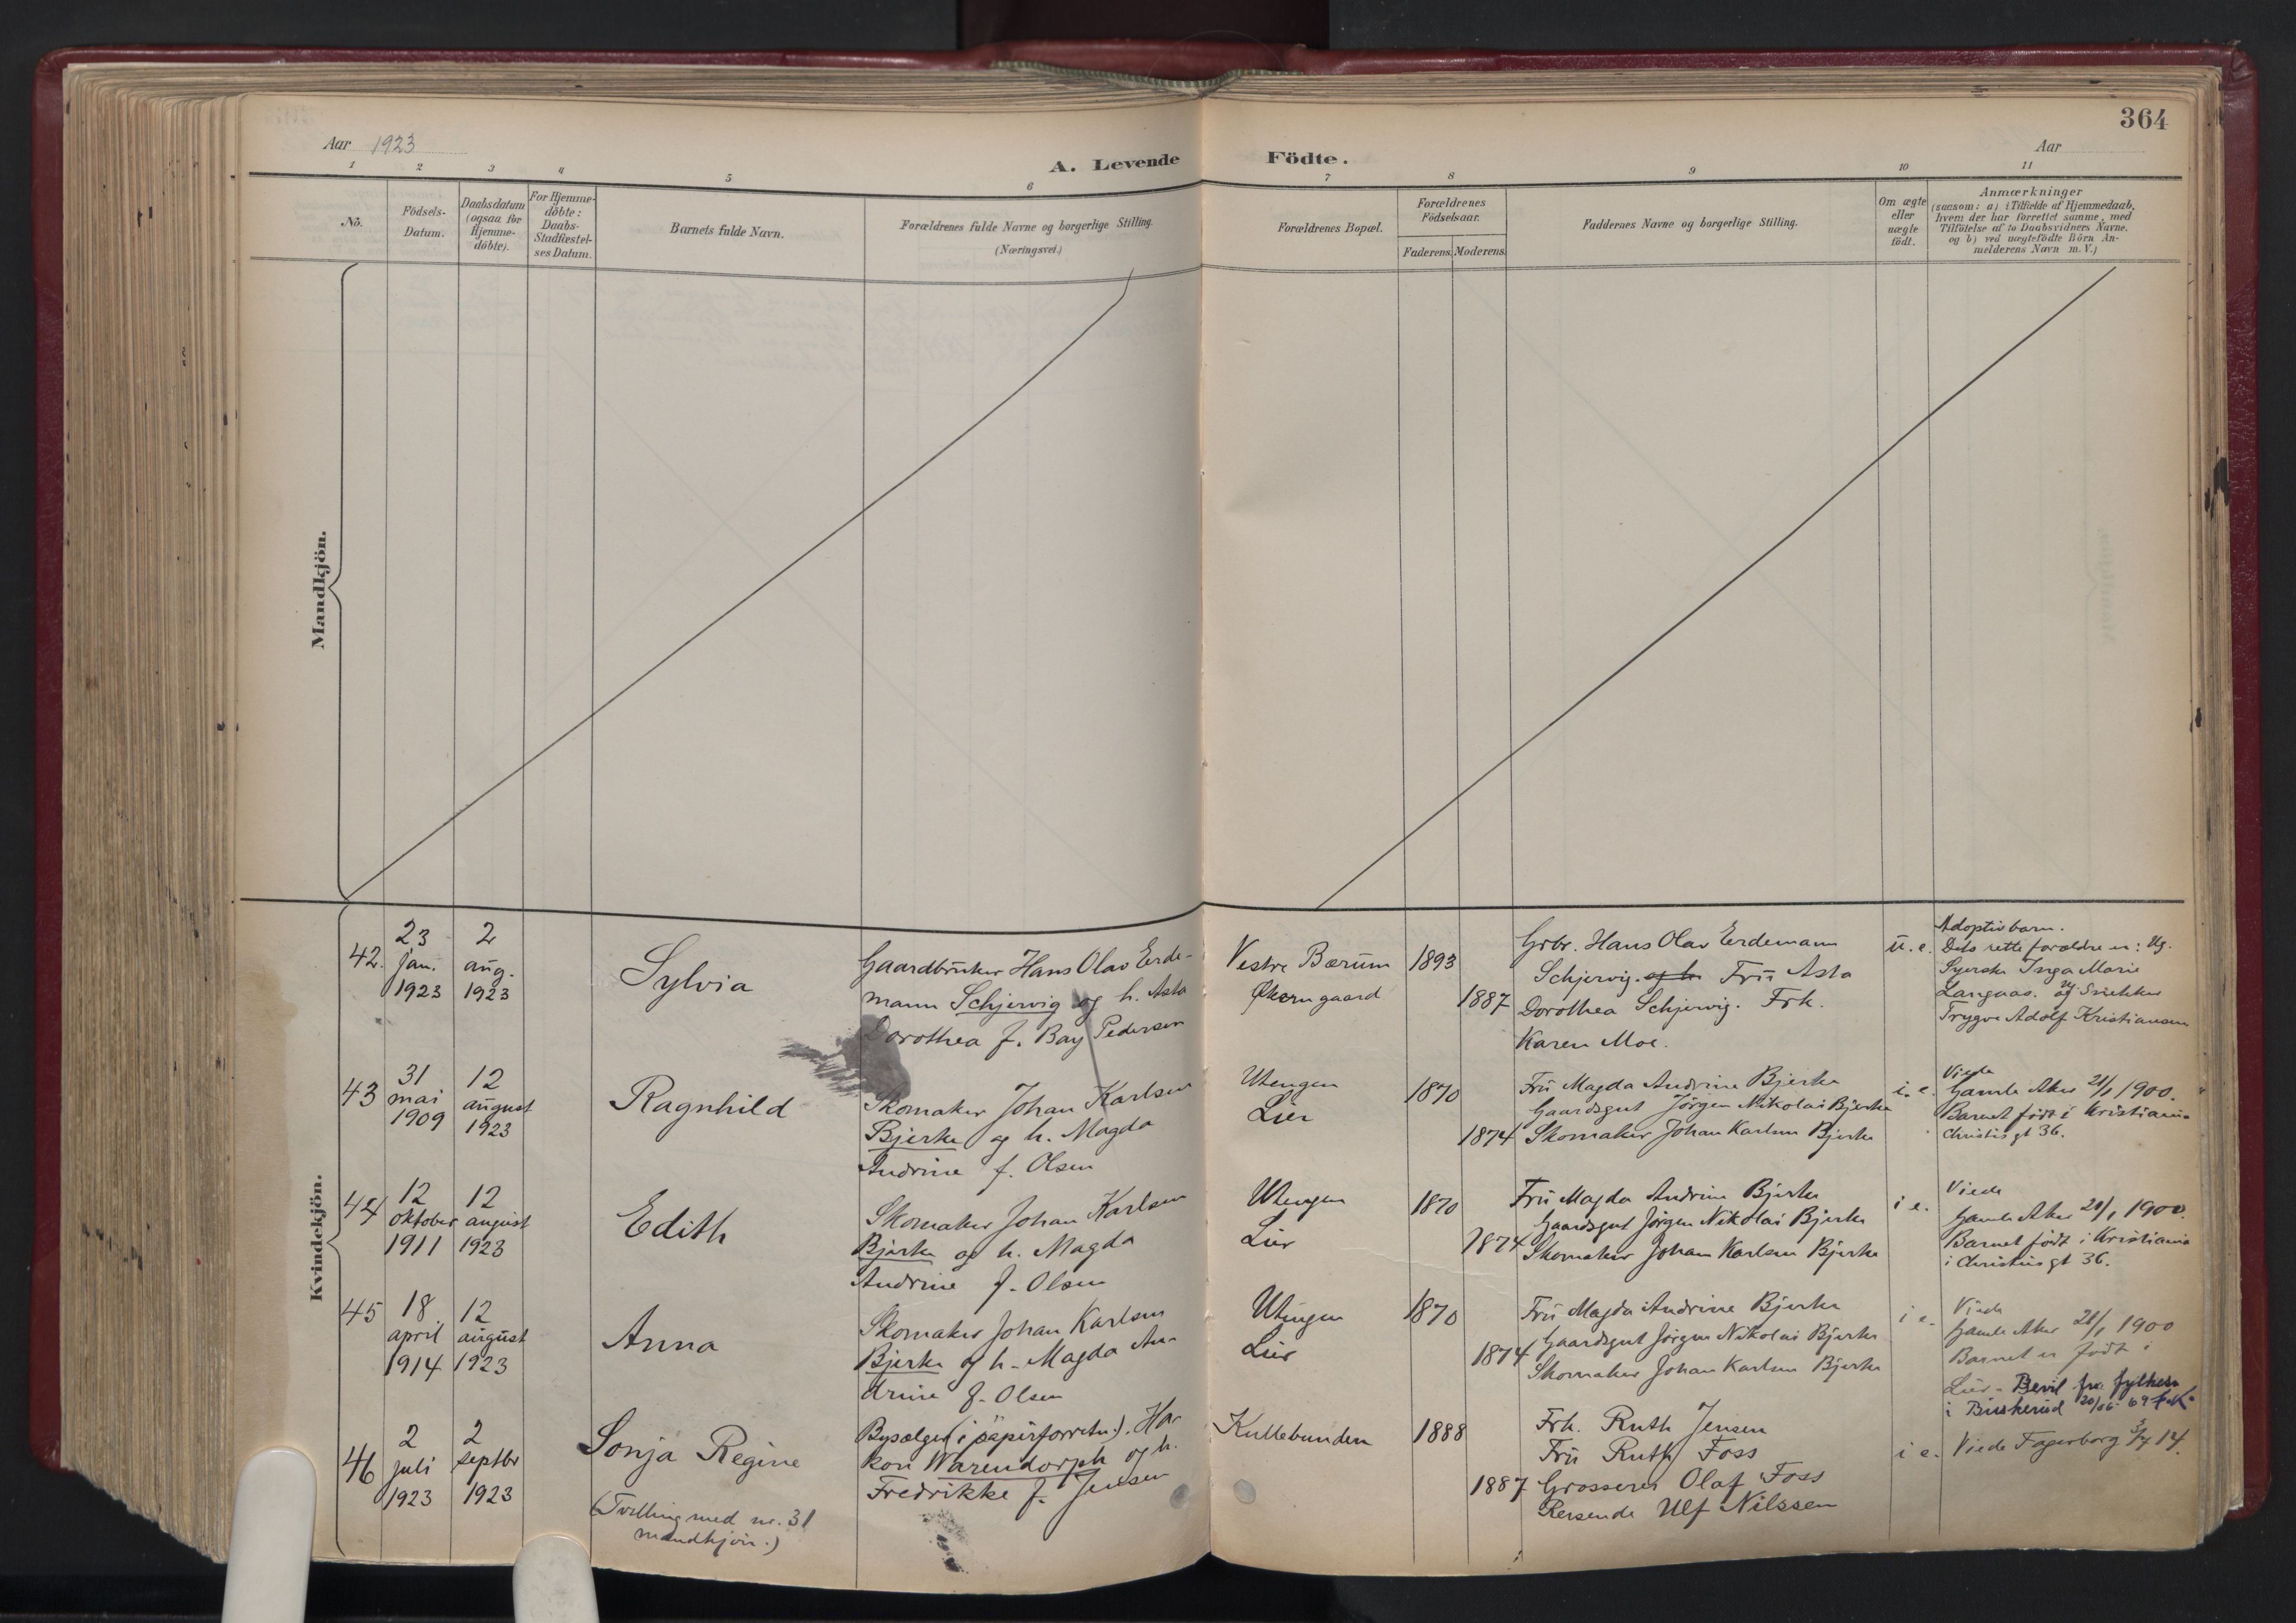 364
Aar 1923
Aar
A. Levende Födte.
1 2 3 4 5 6 7 8 9 10 11
No.
Födsels-
Datum.
Daabsdatum
(ogsaa for
Hjemme-
döbte).
For Hjemme-
döbte:
Daabs-
Stadfæstel-
ses Datum.
Barnets fulde Navn.
Forældrenes fulde Navne og borgerlige Stilling.
(Næringsvei.)
Forældrenes Bopæl.
Forældrenes
Födselsaar.
Faderens. Moderens.
Faddernes Navne og borgerlige Stilling.
Om ægte
eller
uægte
födt.
Anmærkninger
(saasom: a) i Tilfælde af Hjemmedaab,
hvem der har forrettet samme, med
Tilföielse af to Daabsvidners Navne,
og b) ved uægtefödte Börn An-
melderens Navn m. V.)
Mandkjön.
Kvindekjön.
42.
23
jan.
1923
2
aug.
1923
Sylvia
Gaardbruker Hans Olav Erde-
mann Schjervig og h. Asta
Dorothea f. Bay Pedersen
Vestre Bærum
Økern gaard
1893
1887
Grbr. Hans Olav Erdemann
Schjervig. og h. Fru Asta
Dorothea Schjervig. Frk.
Karen Moe.
u. e.
Adoptivbarn.
Dets rette forældre er: Ug.
Syerske Inga Marie
Langaas. og Snekker
Trygve Adolf Kristiansen
43
31
mai
1909
12
august
1923
Ragnhild
Skomaker Johan Karlsen
Bjerke og h. Magda
Andrine f. Olsen
Utengen
Lier
1870
1874
Fru Magda Andrine Bjerke
Gaardsgut Jörgen Nikolai Bjerke
Skomaker Johan Karlsen Bjerke
i. e.
Viede
Gamle Aker 21/1 1900.
Barnet født i Kristiania
Christisgt 36.
44
12
oktober
1911
12
august
1923
Edith
Skomaker Johan Karlsen
Bjerke og h. Magda
Andrine f. Olsen
Utengen
Lier
1870
1874
Fru Magda Andrine Bjerke
Gaardsgut Jörgen Nikolai Bjerke
Skomaker Johan Karlsen Bjerke
i e.
Viede
Gamle Aker 21/1 1900.
Barnet født i Kristiania
i Christiesgt 36.
45
18
april
1914
12
august
1923
Anna
Skomaker Johan Karlsen
Bjerke og h. Magda An-
drine f. Olsen
Utengen
Lier
1870
1874
Fru Magda Andrine Bjerke
Gaardsgut Jörgen Nikolai Bjerke
Skomaker Johan Karlsen Bjerke
i e.
Viede
Gamle Aker 21/1 1900
Barnet er født i
Lier - Bevil. fra fylkesm
i Buskerud 20/06-69
46
2
juli
1923
2
septbr
1923
Sonja Regine
(Tvilling med nr. 31
mandkjøn.)
Bysælger (i papirforretn.). Haa-
kon Warendorph og h.
Fredrikke f. Jensen
Kullebunden
1888
1887
Frk. Ruth Jensen
Fru Ruth Foss
Grosserer Olaf Foss
Reisende Ulf Nilssen
i e.
Viede Fagerborg 3/4 14.